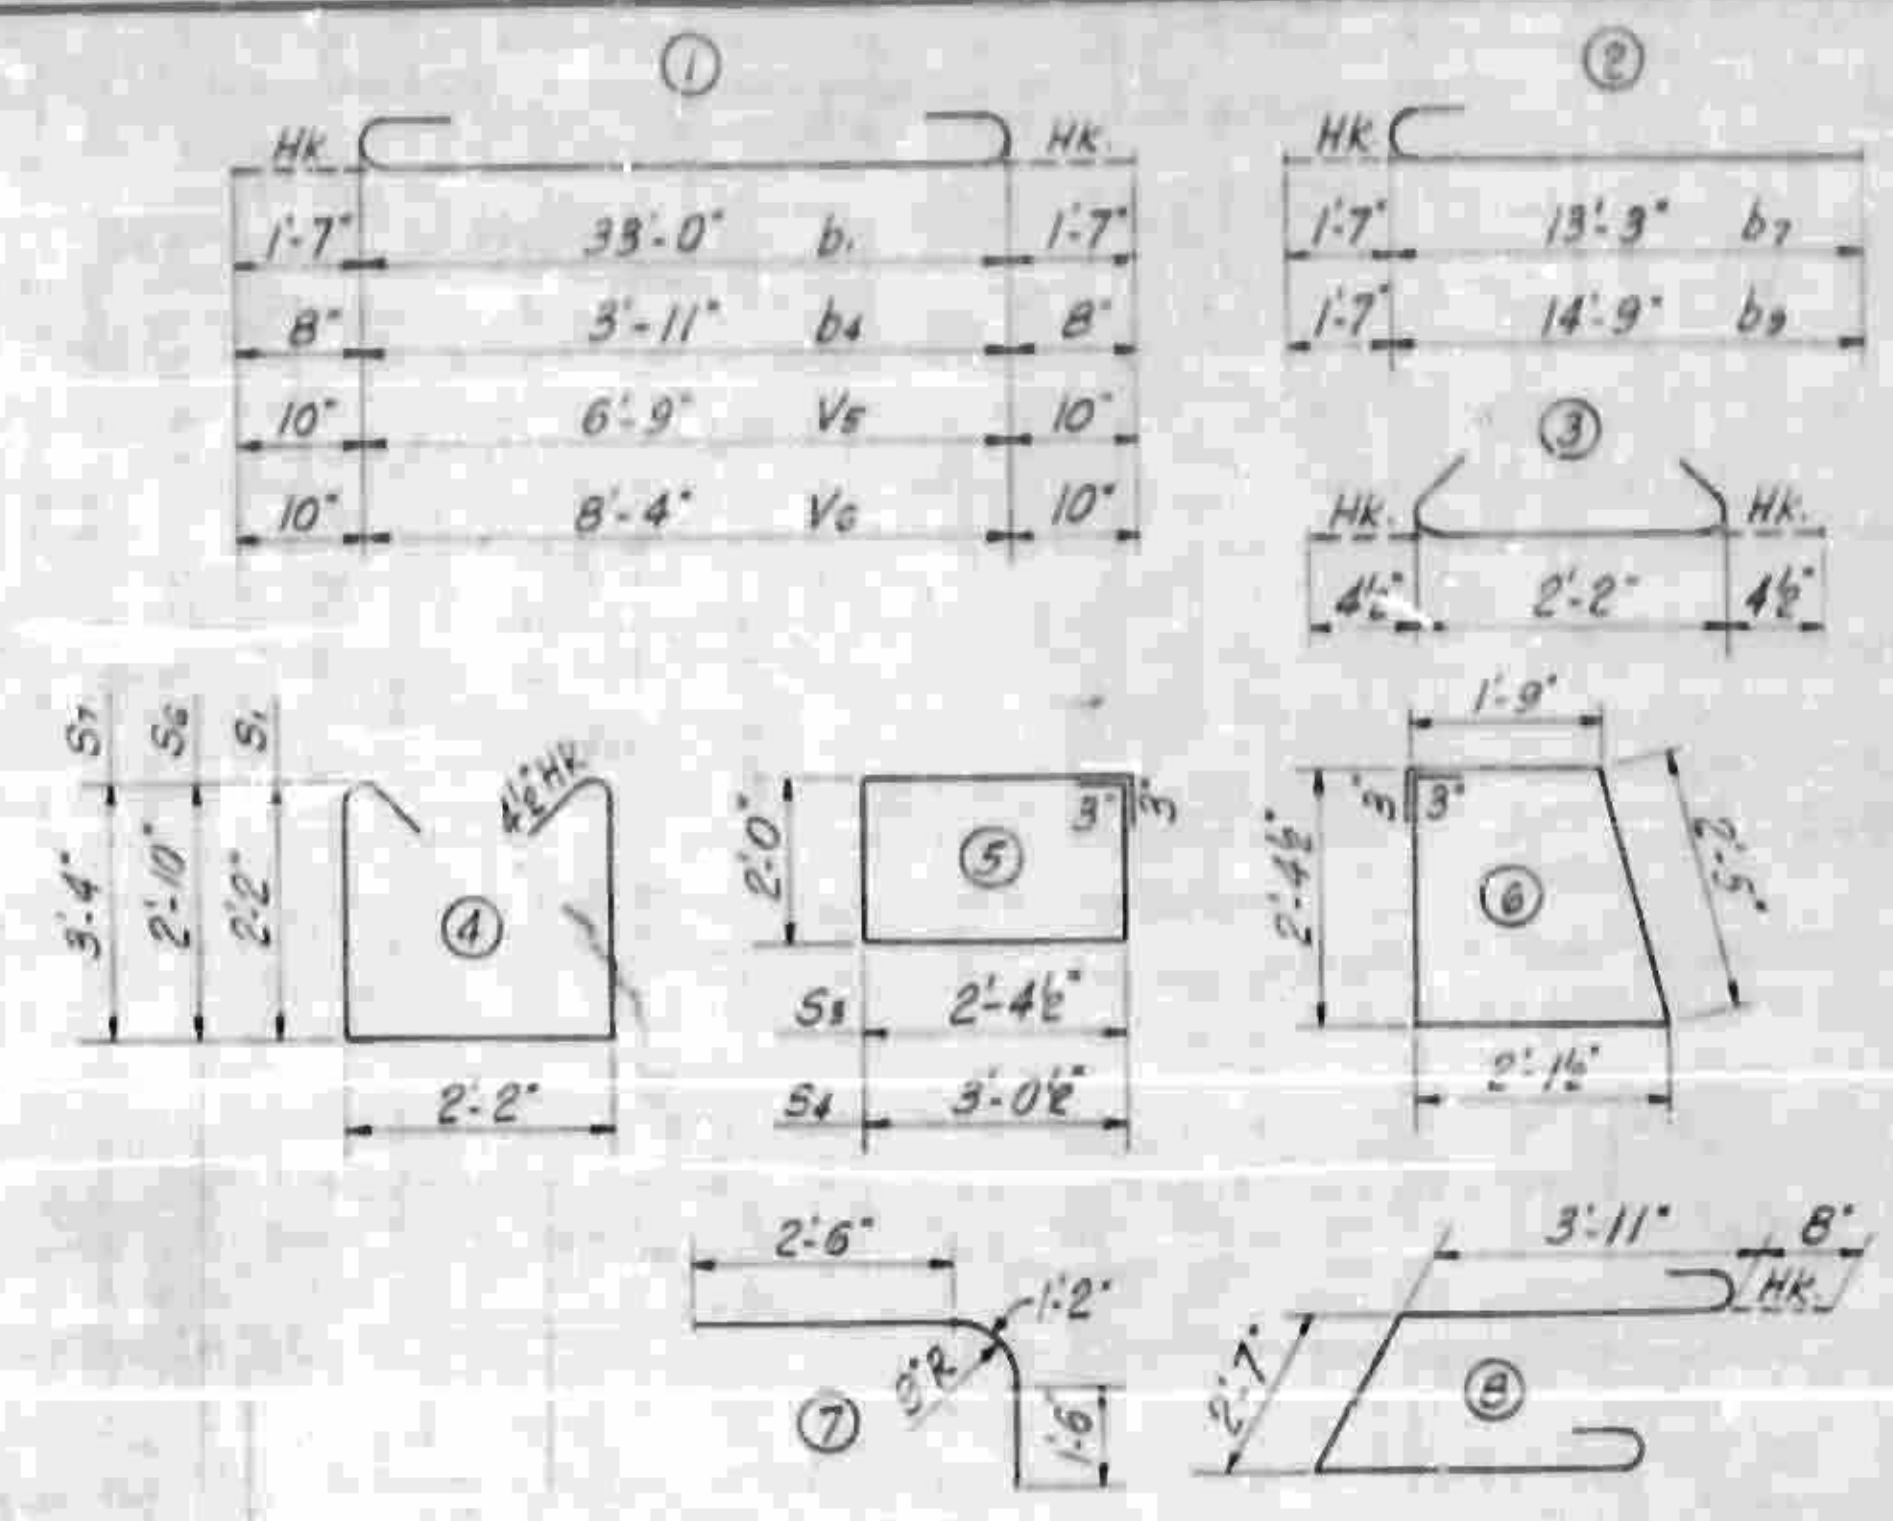 1
HK. HK.
1'-7" 33'-0" b1 1'-7"
8" 3'-11" b4 8"
10" 6'-9" V5 10"
10" 8'-4" V6 10"
2
HK.
1'-7" 13'-3" b7
1'-7" 14'-9" b9
3
HK. HK.
4½" 2'-2" 4½"
S7 S6 S1
3'-4" 2'-10" 2'-2"
4½" HK
4
2'-2"
2'-0"
3" 3"
5
S3 2'-4½"
S4 3'-0½"
1'-9"
3" 3"
2'-4½" 2'-5"
6
2'-1½"
2'-6"
1'-2"
9"R.
7
1'-6"
3'-11" 8"
HK.
2'-7"
8